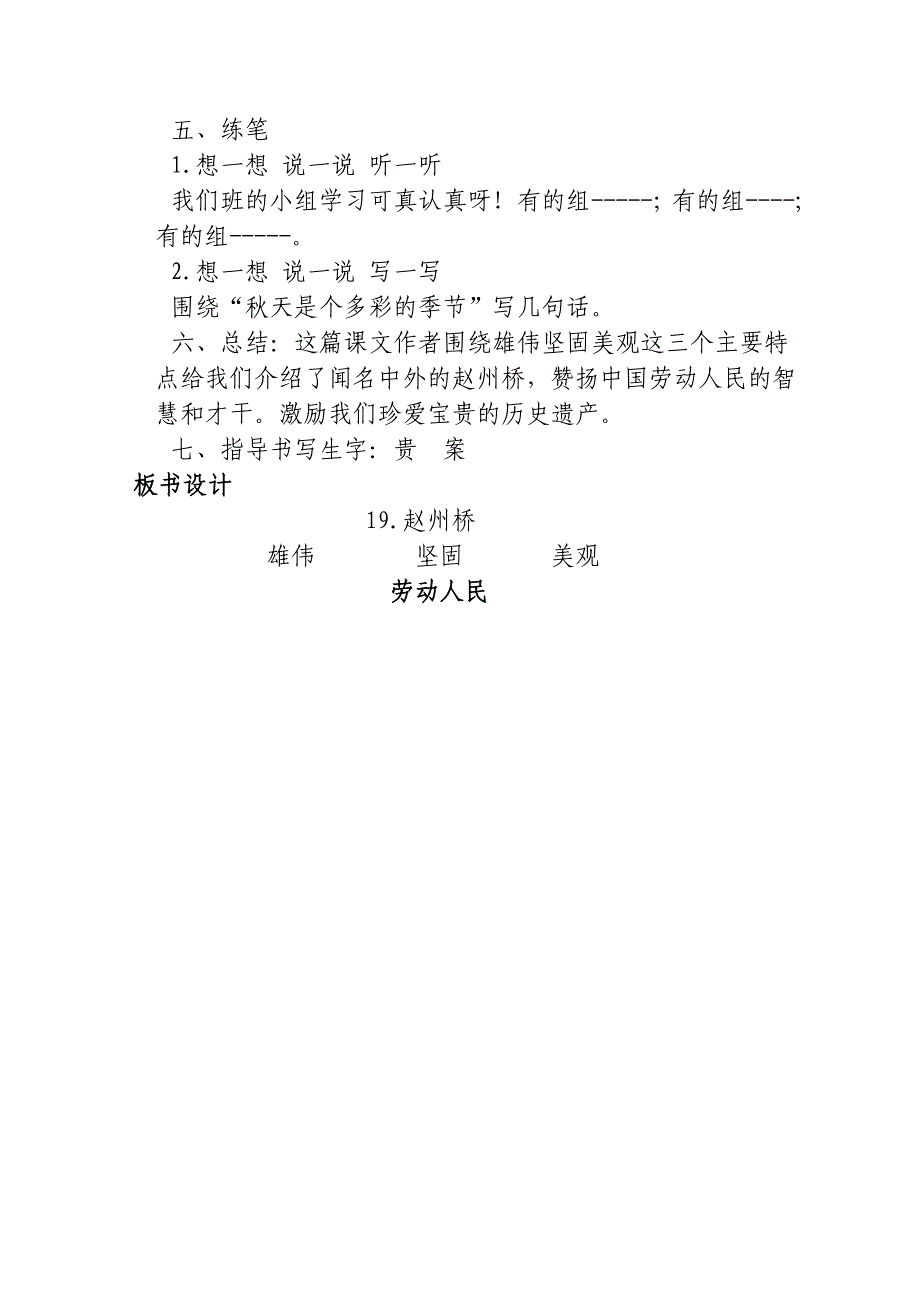 五、练笔
1.想一想 说一说 听一听
我们班的小组学习可真认真呀！有的组-----；有的组----；
有的组-----。
2.想一想 说一说 写一写
围绕“秋天是个多彩的季节”写几句话。
六、总结：这篇课文作者围绕雄伟坚固美观这三个主要特
点给我们介绍了闻名中外的赵州桥，赞扬中国劳动人民的智
慧和才干。激励我们珍爱宝贵的历史遗产。
七、指导书写生字：贵 案
板书设计
19.赵州桥
雄伟 坚固 美观
劳动人民